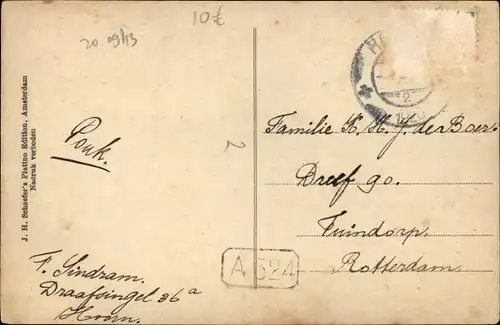 10€
20 09/13
J. H. Schaefer's Platino Edition, Amsterdam
Nadruk verboden
2
Familie K. H. J. de Boer
Dreef 90.
Tuindorp.
Rotterdam
F. Sindram.
Draafsingel 36a
Hoorn.
A 524
2